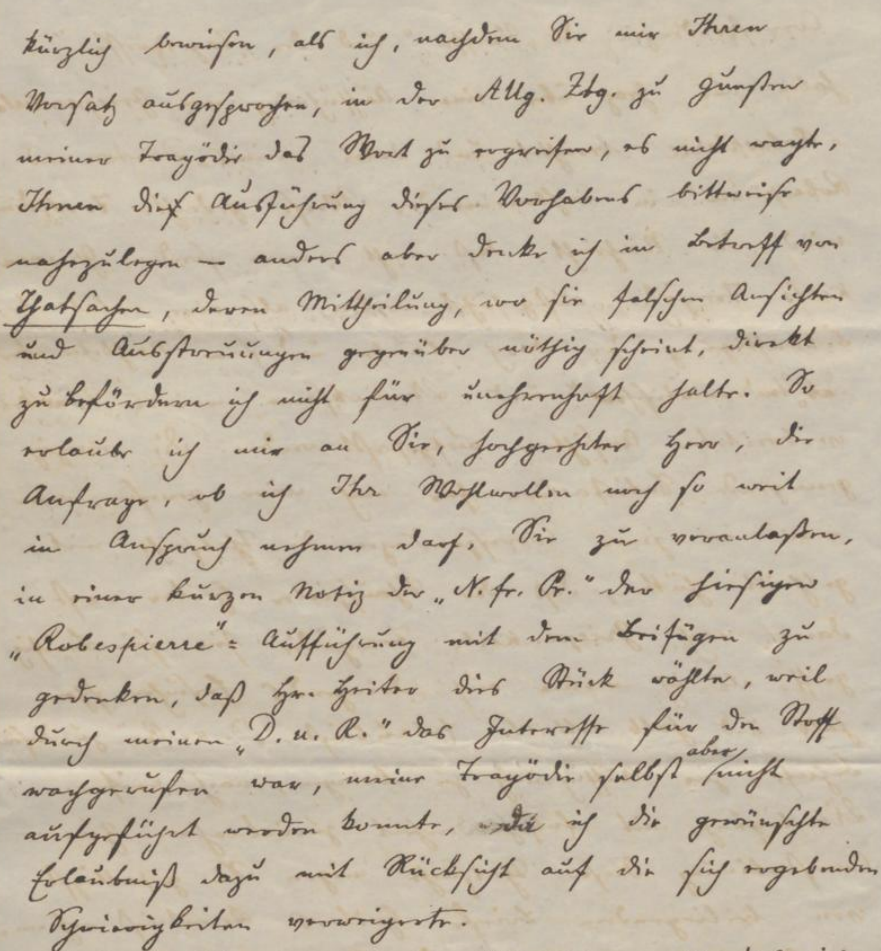 kürzlich bewiesen, als ich, nachdem Sie mir Ihren
Vorsatz ausgesprochen, in der Allg. Ztg. zu Gunsten
meiner Tragödie das Wort zu ergreifen, es nicht wagte,
Ihnen die Ausführung dieses Vorhabens bittweise
nahezulegen – anders aber denke ich in Betreff von
Thatsachen, deren Mittheilung, wo sie falschen Ansichten
und Ausstreuungen gegenüber nöthig scheint, direkt
zu befördern ich nicht für unehrenhaft halte. So
erlaube ich mir an Sie, hochgeehrter Herr, die
Anfrage, ob ich Ihr Wohlwollen noch so weit
in Anspruch nehmen darf, Sie zu veranlaßen,
in einer kurzen Notiz der „N. fr. Pr." der hiesigen
„Robespierre"= Aufführung mit dem Beifügen zu
gedenken, daß Hr. Heiter dies Stück wählte, weil
durch meinen „D. u. R." das Interesse für den Stoff
wachgerufen war, meine Tragödie selbst aber nicht
aufgeführt werden konnte, da ich die gewünschte
Erlaubniß dazu mit Rücksicht auf die sich ergebenden
Schwierigkeiten verweigerte.